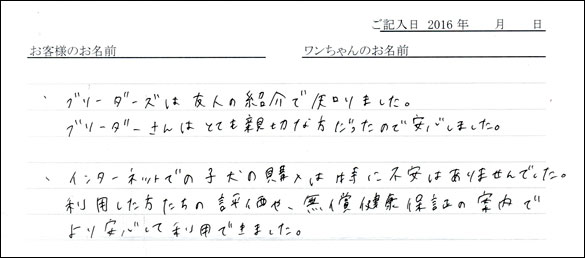 ご記入日 2016 年　　月　　日
お客様のお名前　　ワンちゃんのお名前
、ブリーダーズは友人の紹介で知りました。
ブリーダーさんはとても親切な方だったので安心しました。
、インターネットでの子犬の購入は特に不安はありませんでした。
利用した方たちの評価や、無償健康保証の案内で
より安心して利用できました。